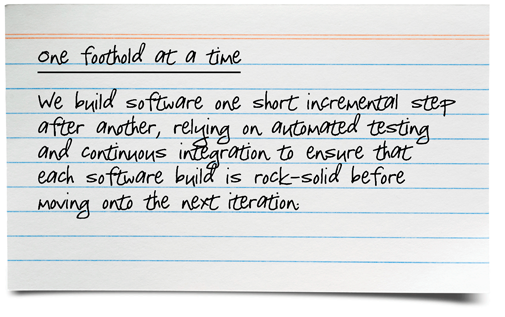 One foothold at a time
We build software one short incremental step
after another, relying on automated testing
and continuous integration to ensure that
each software build is rock-solid before
moving onto the next iteration.